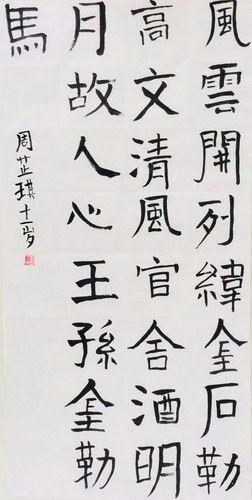 風雲開列緯金石勒
高文清風官舍酒明
月故人心王孫金勒
馬
周芷琪十一岁